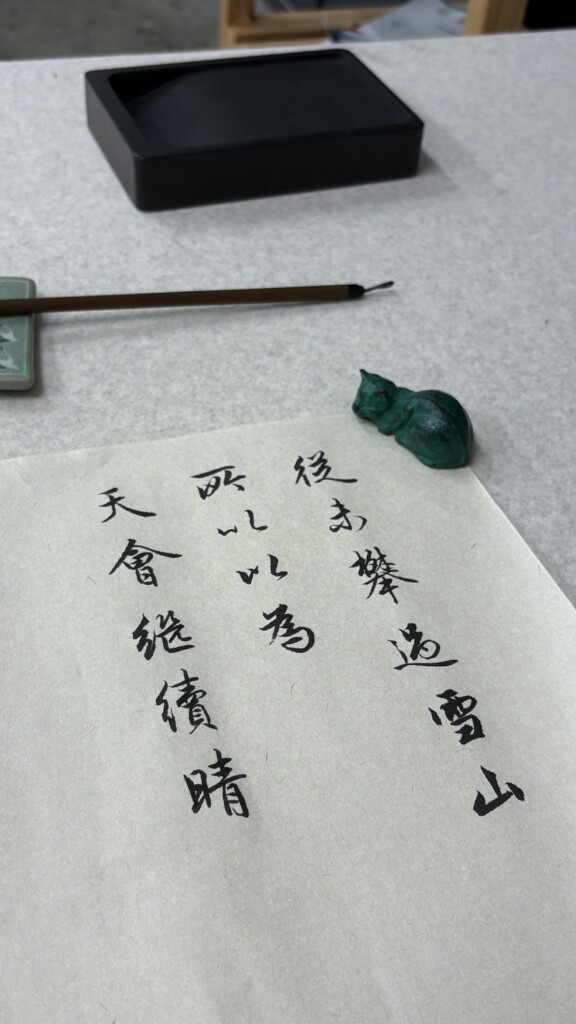 從未攀過雪山
所以以為
天會继續晴